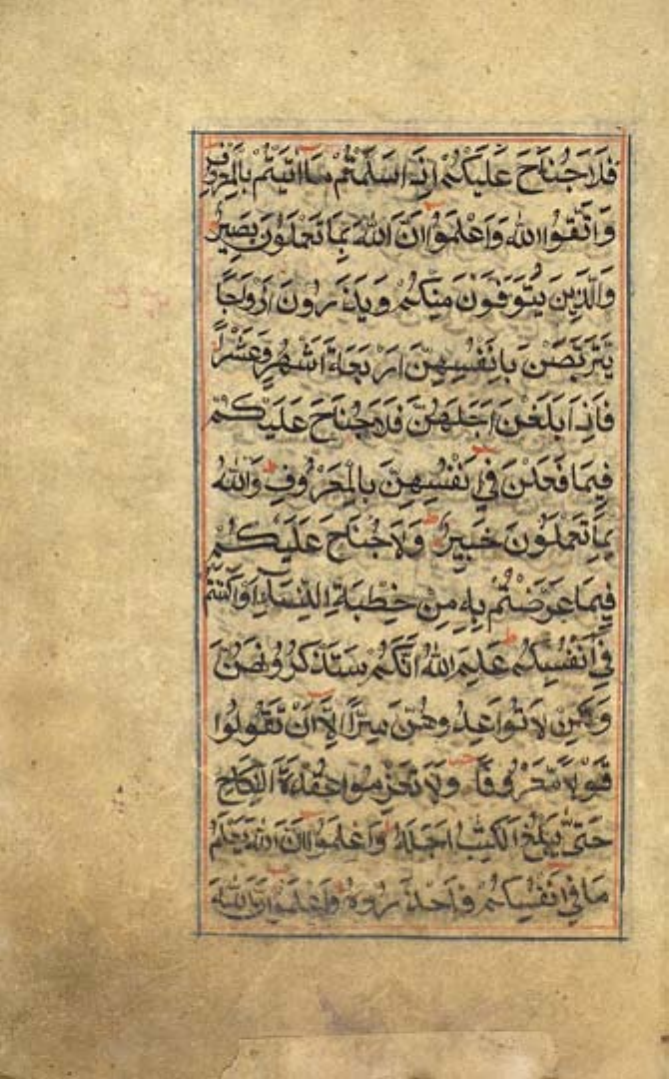 فَلَا جُنَاحَ عَلَيْكُمْ اِذَا سَلَّمْتُمْ مَا اٰتَيْتُمْ بِالْمَعْرُوفِ
وَاتَّقُوا اللّٰهَ وَاعْلَمُوا اَنَّ اللّٰهَ بِمَا تَعْمَلُونَ بَصِيرٌ
وَالَّذِينَ يُتَوَفَّوْنَ مِنْكُمْ وَيَذَرُونَ اَزْوَاجًا
يَتَرَبَّصْنَ بِاَنْفُسِهِنَّ اَرْبَعَةَ اَشْهُرٍ وَعَشْرًا
فَاِذَا بَلَغْنَ اَجَلَهُنَّ فَلَا جُنَاحَ عَلَيْكُمْ
فِيمَا فَعَلْنَ فِي اَنْفُسِهِنَّ بِالْمَعْرُوفِ وَاللّٰهُ
بِمَا تَعْمَلُونَ خَبِيرٌ وَلَا جُنَاحَ عَلَيْكُمْ
فِيمَا عَرَّضْتُمْ بِهِ مِنْ خِطْبَةِ النِّسَاءِ اَوْ اَكْنَنْتُمْ
فِي اَنْفُسِكُمْ عَلِمَ اللّٰهُ اَنَّكُمْ سَتَذْكُرُونَهُنَّ
وَلٰكِنْ لَا تُوَاعِدُوهُنَّ سِرًّا اِلَّا اَنْ تَقُولُوا
قَوْلًا مَعْرُوفًا وَلَا تَعْزِمُوا عُقْدَةَ النِّكَاحِ
حَتّٰى يَبْلُغَ الْكِتٰبُ اَجَلَهُ وَاعْلَمُوا اَنَّ اللّٰهَ يَعْلَمُ
مَا فِي اَنْفُسِكُمْ فَاحْذَرُوهُ وَاعْلَمُوا اَنَّ اللّٰهَ